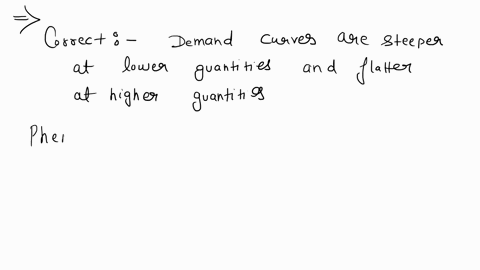 ⇒
Correct :- Demand curves are steeper
at lower quantities and flatter
at higher quantities
Phe